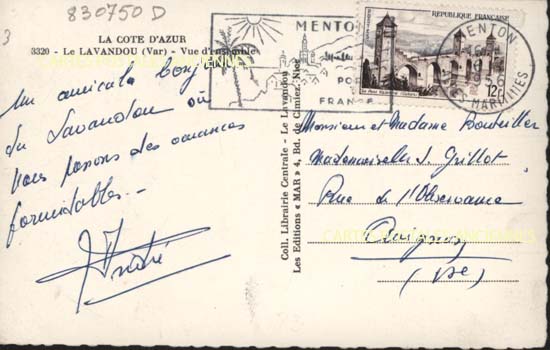 830750 D
3
LA COTE D'AZUR
3320. - Le LAVANDOU (Var) - Vue d'ensemble
Un amical bonjour
du Lavandou où
nous passons des vacances
formidables. -
André
Coll. Librairie Centrale - Le Lavandou
Les Editions « MAR » 4, Bd. de Cimiez, Nice
MENTON
PO
FRANCE
REPUBLIQUE FRANÇAISE
12f
MENTON
MARITIMES
Monsieur et Madame Bouteiller
Mademoiselle J. Grillot
Rue de l'Observance
Avignon
(Vse)
CARTES POSTALES ANCIENNES